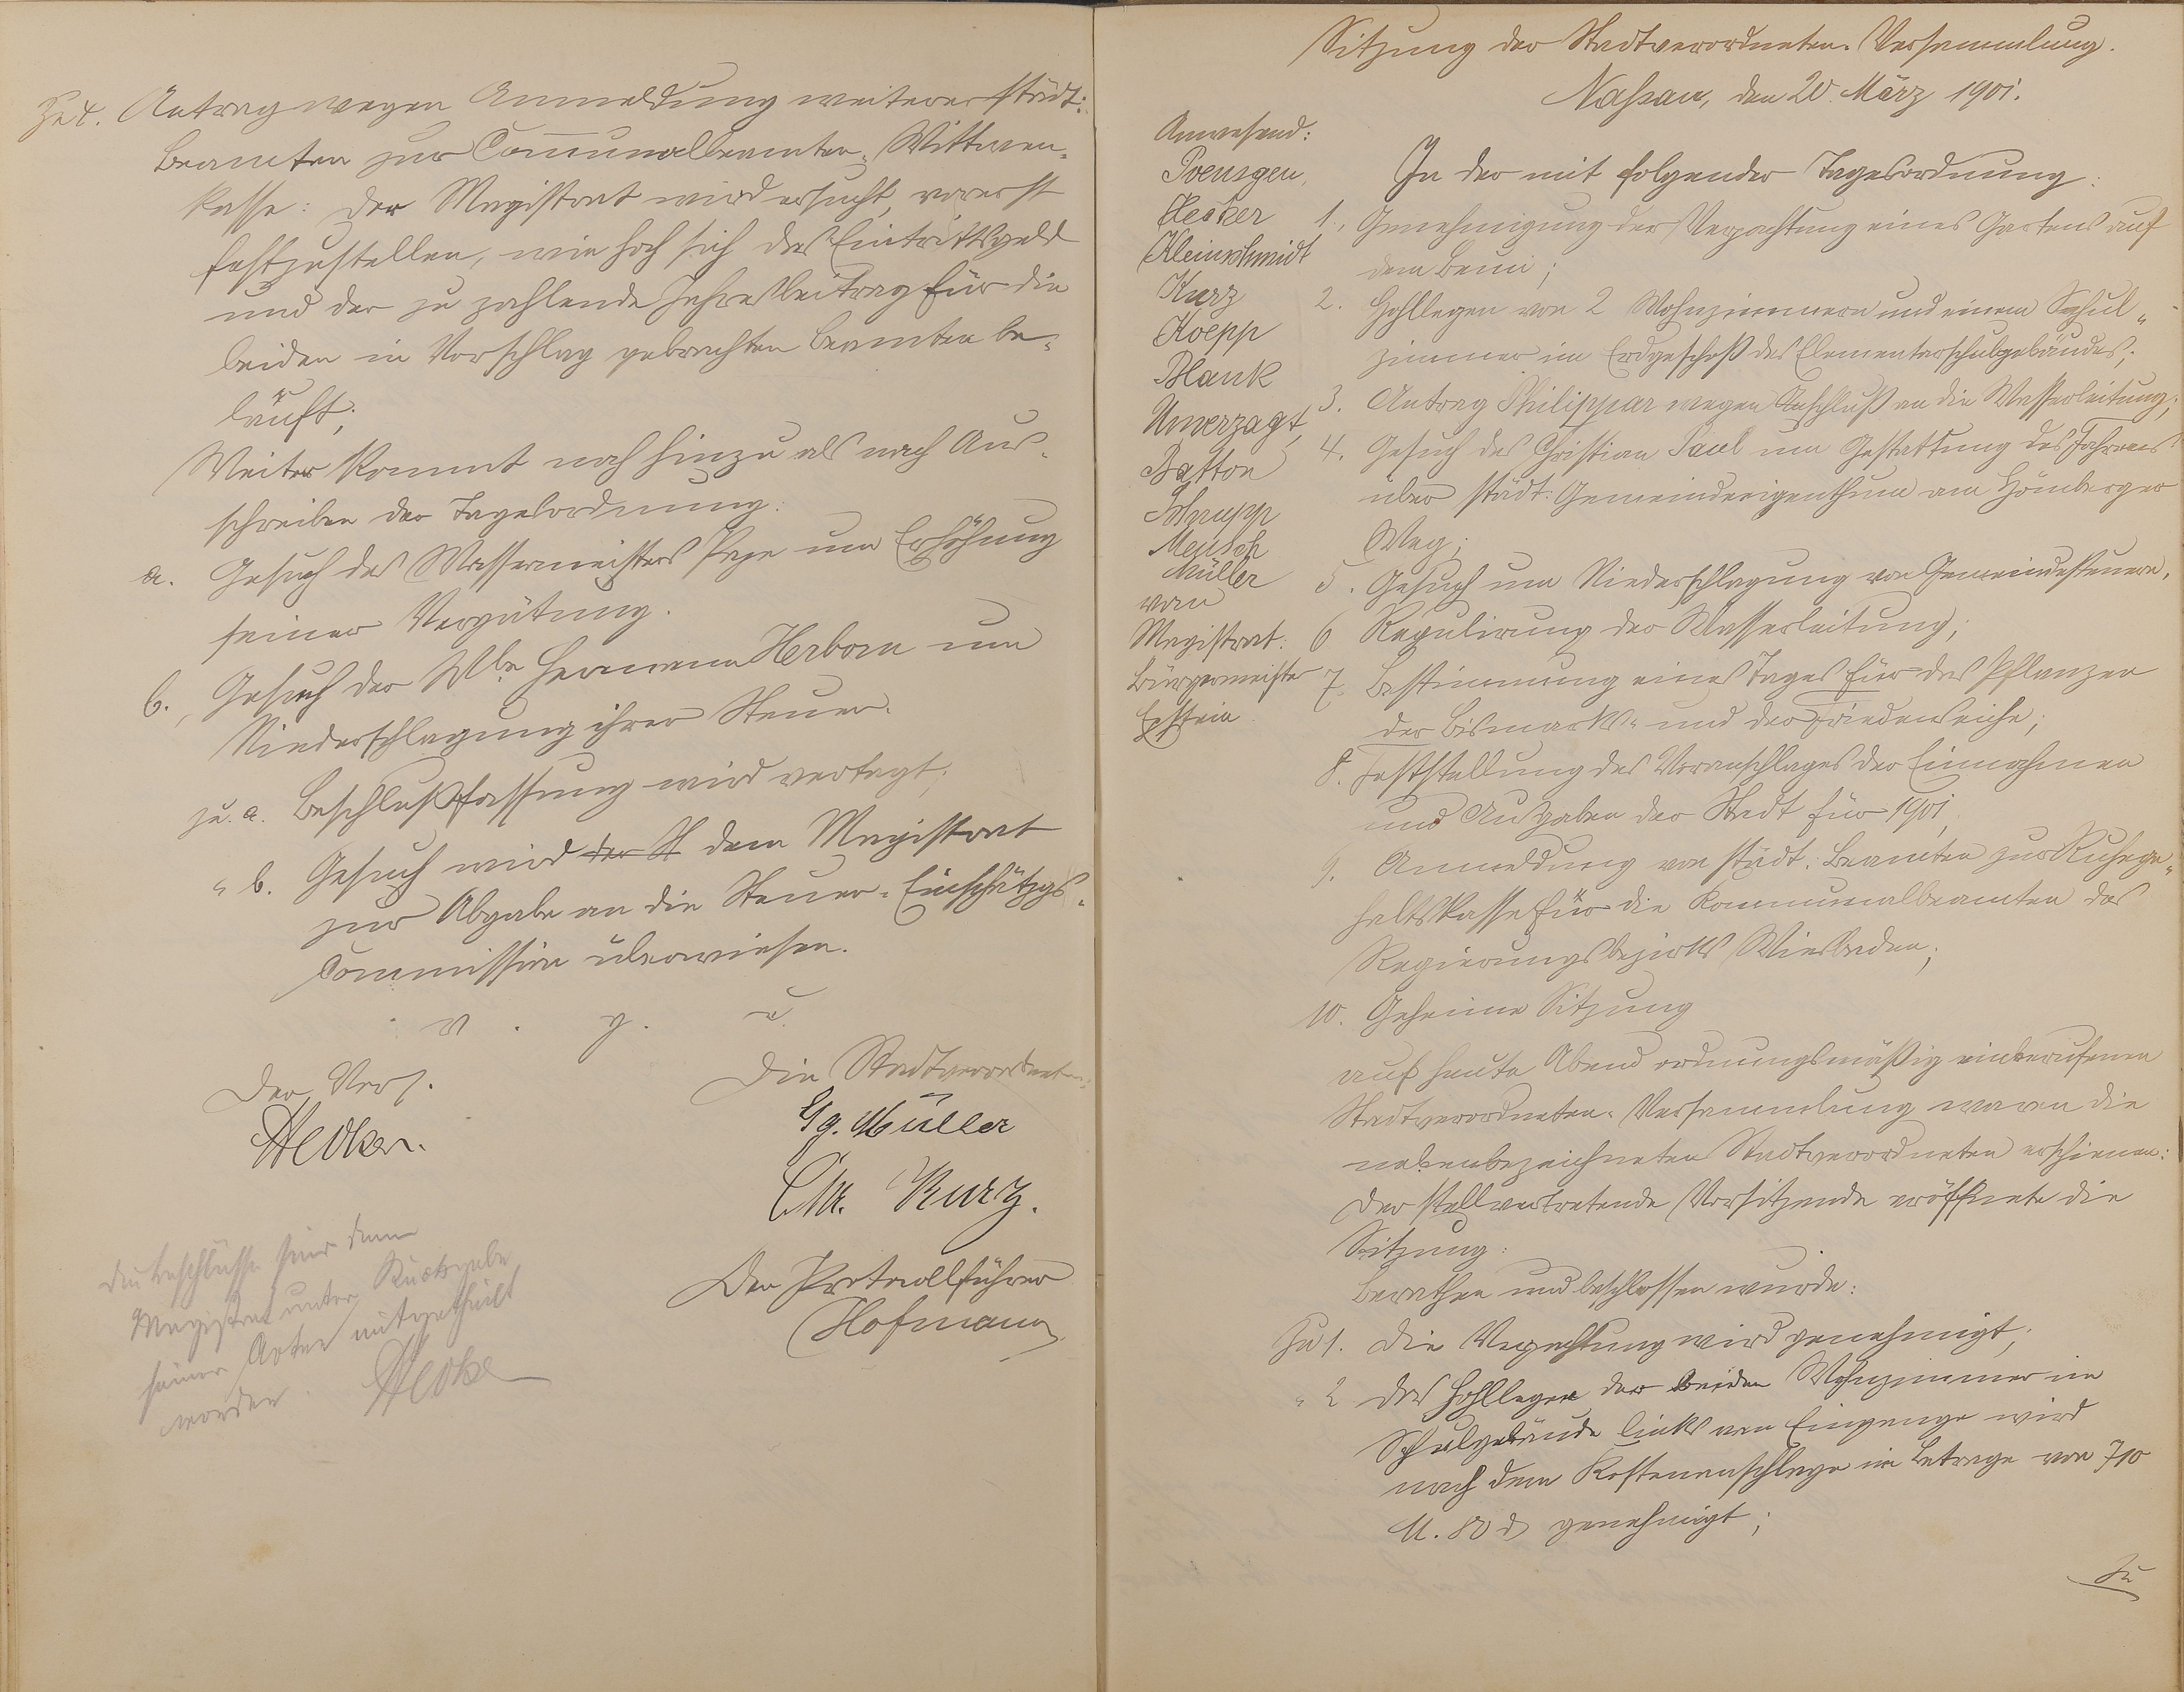 Zu 4. Antrag wegen Anmeldung weiterer städt:
Beamten zur Communalbeamten-Wittwen-
kasse: Der Magistrat wird ersucht, vorerst
festzustellen, wie hoch sich das Eintrittsgeld
und der zu zahlende Jahresbeitrag für die
beiden in Vorschlag gebrachten Beamten be-
läuft;
Weiter kommt noch hinzu als nach Aus-
schreiben der Tagesordnung:
a. Gesuch des Wassermeisters um Erhöhung
seiner Vergütung.
b., Gesuch der Wwe Hermann Herborn um
Niederschlagung ihrer Steuer.
zu. a. Beschlußfassung wird vertagt;
" b. Gesuch wird der St dem Magistrat
zur Abgabe an die Steuer-Einschätzgs-
Commission überwiesen.
v. g. u.
Der Vors.
Die Stadtverordneten:
Hecker.
Gg. Müller
Chr. Kurz.
Der Protocollführer
Hofmann
Die Beschlüsse sind dem
Magistrat unter Rückgabe
seiner Acten mitgetheilt
worden. Hecker
Sitzung der Stadtverordneten-Versammlung.
Naßau, den 20. März 1901.
Anwesend:
Poensgen,
Hecker
Kleinschmidt
Kurz
Koepp
Blank
Unverzagt,
Batton
Schrupp
Meusch
Müller
vom
Magistrat:
Bürgermeister
Epstein
In der mit folgender Tagesordnung:
1., Genehmigung der Verpachtung eines Gartens auf
dem ;
2. Hohllegen von 2 Wohnzimmern und einem Schul-
zimmer im Erdgeschoß des Elementarschulgebäudes;
3. Antrag Philippar wegen Anschluß an die Wasserleitung;
4. Gesuch des Christian Paul um Gestattung des Fahrens
über städt: Gemeindeeigenthum am Hömberger
Weg;
5. Gesuch um Niederschlagung von Gemeindesteuern,
6 Regulirung der Wasserleitung;
7. Bestimmung eines Tages für das Pflanzen
der Bismark- und der Friedenseiche;
8. Feststellung des Voranschlages der Einnahmen
und Ausgaben der Stadt für 1901,
9. Anmeldung von städt. Beamten zur Ruhege-
haltskasse für die Kommunalbeamten des
Regierungsbezirks Wiesbaden;
10. Geheime Sitzung
auf heute Abend ordnungsmäßig einberufenen
Stadtverordneten-Versammlung waren die
nebenbezeichneten Stadtverordneten erschienen:
Der stellvertretende Vorsitzende eröffnete die
Sitzung:
Berathen und beschlossen wurde:
Zu 1. Die Verpachtung wird genehmigt;
" 2 Das Hohllegen der beiden Wohnzimmer im
Schulgebäude links vom Eingange wird
nach dem Kostenanschlage im Betrage von 710
M. 80 d genehmigt;
Zu